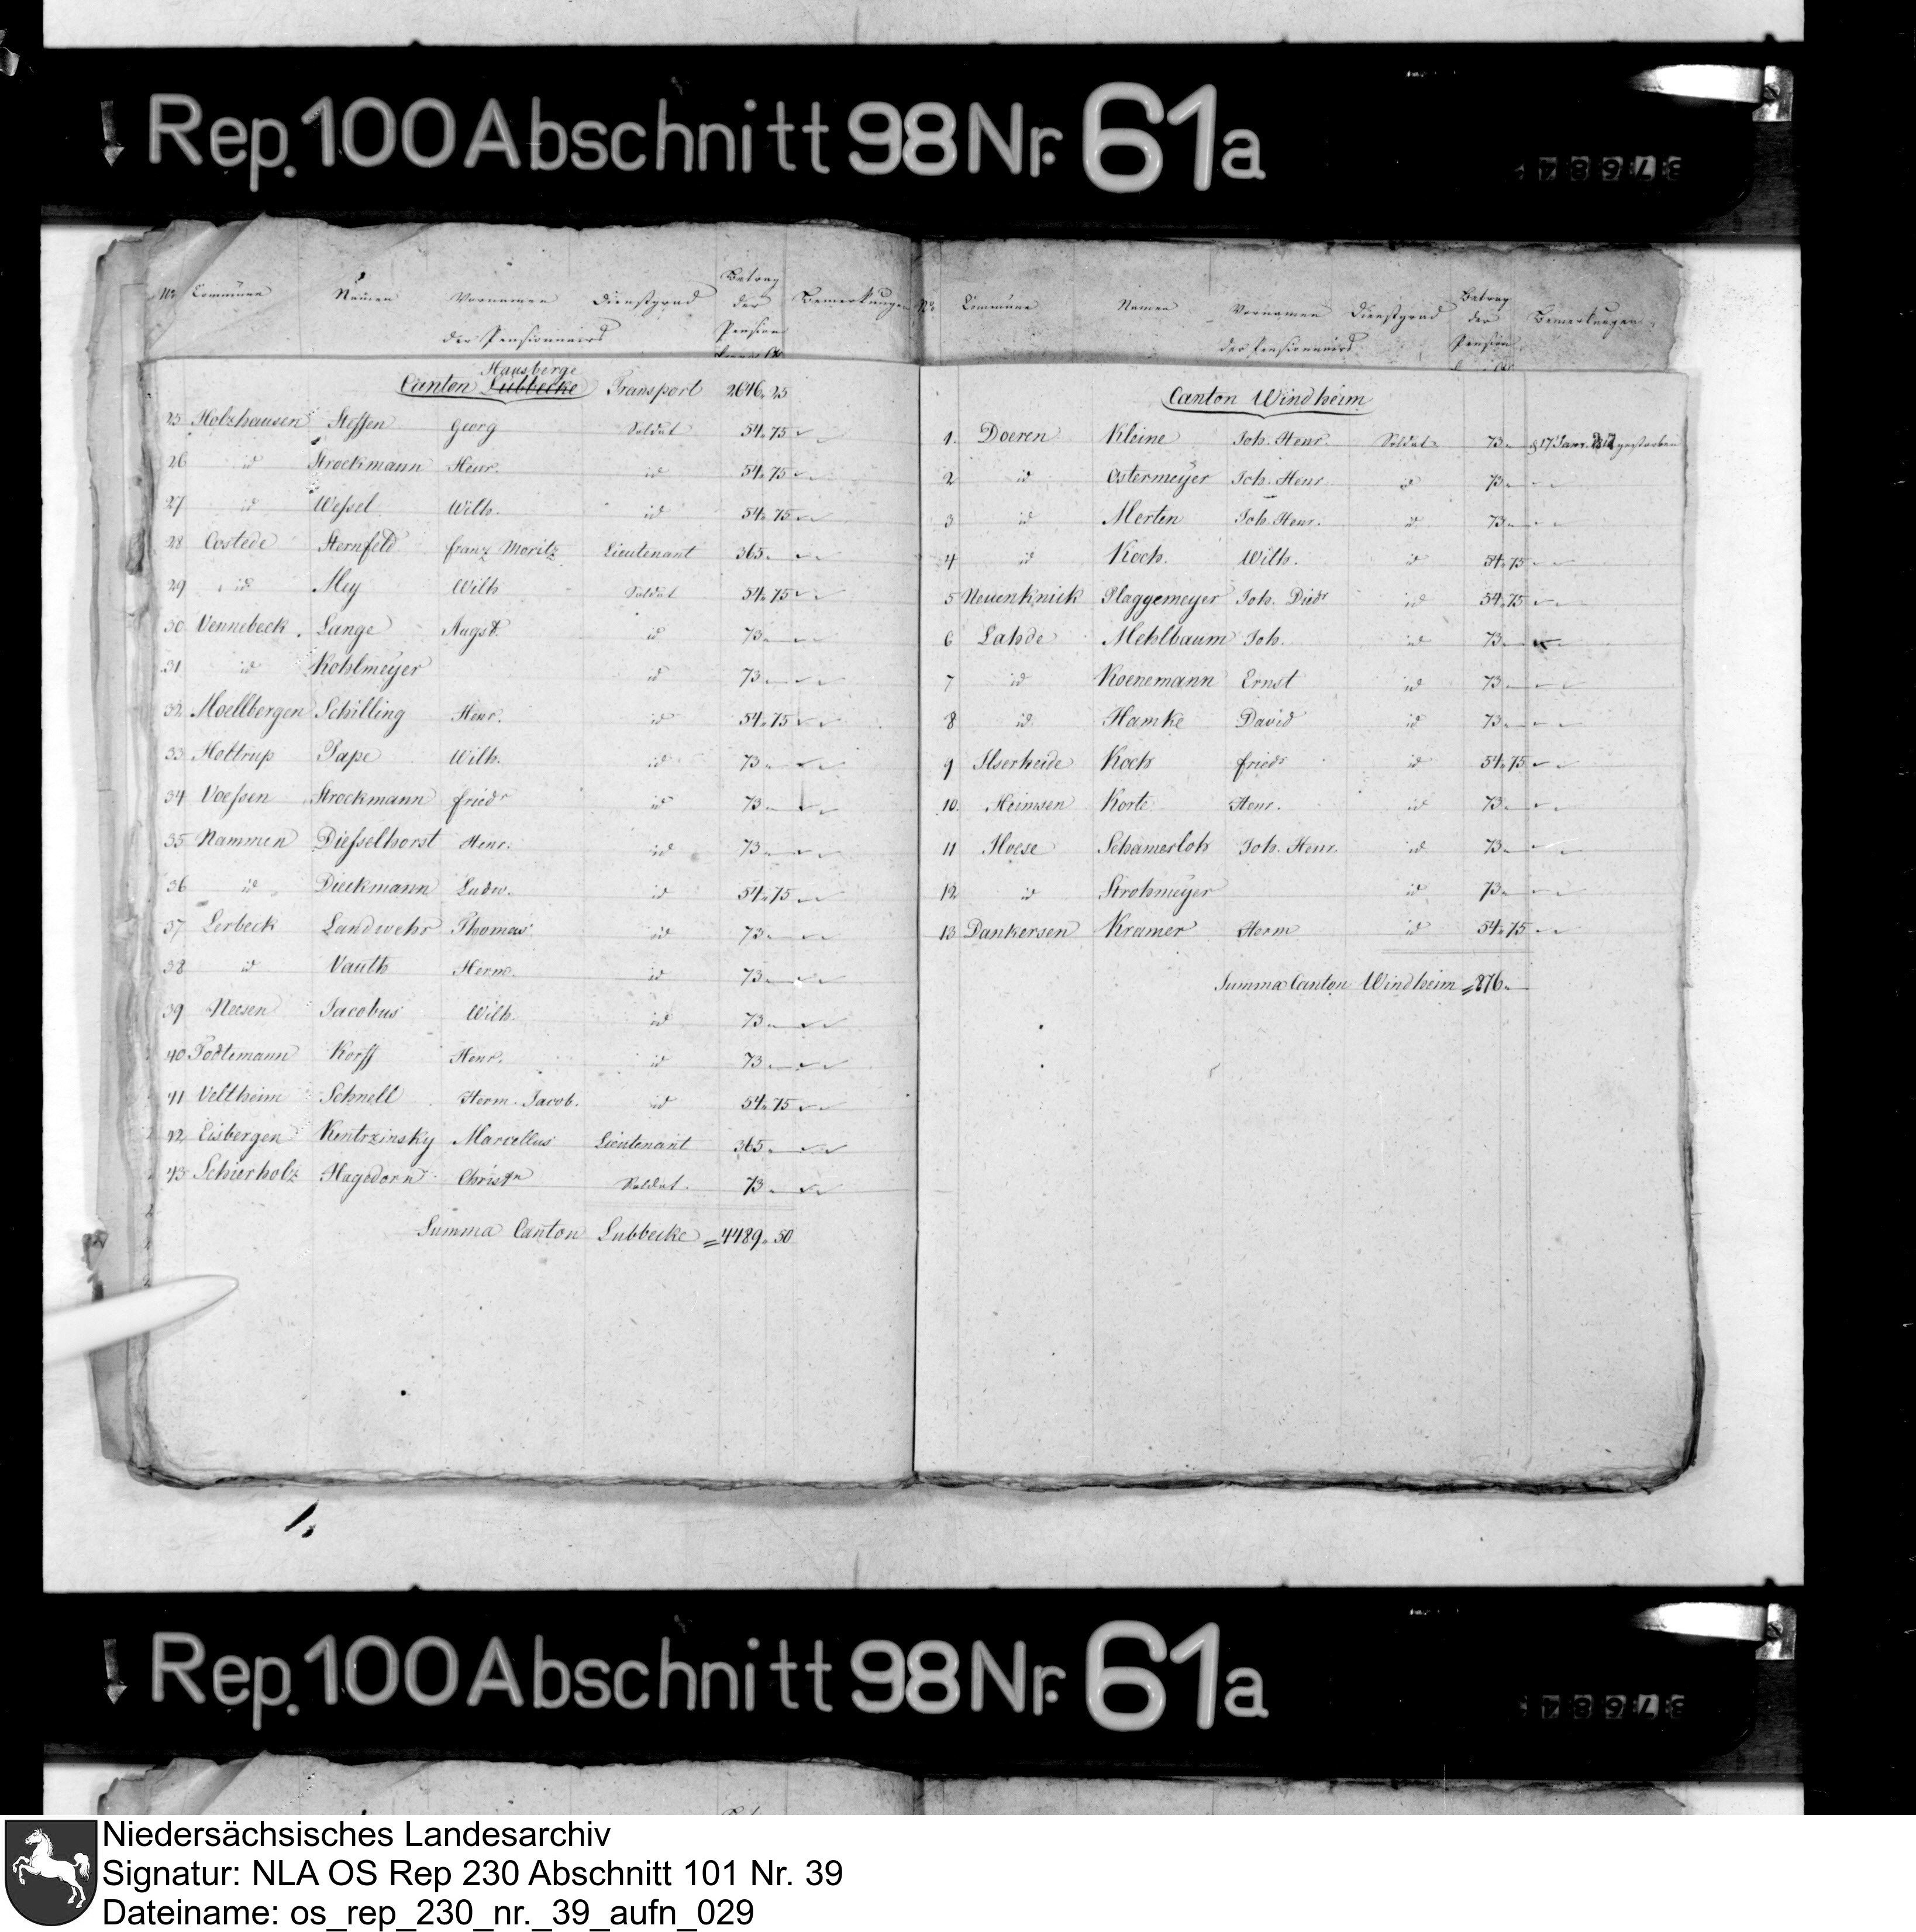 Rep. 100 Abschnitt 98 Nr. 61a
37684
No Commüne Namen Vornamen Dienstgrad Betrag der Pension Bemerkungen
der Pensionnairs
Hausberge
Canton Lübbecke Transport 2646. 25
25 Holzhausen Steffen Georg Soldat 54. 75
26 id Strockmann Henr. id 54. 75
27 id Wessel Wilh. id 54. 75
28 Costede Sternfeld Franz Moritz Lieutenant 365.
29 id Mey Wilh Soldat 54. 75
30 Vennebeck Lange Augst. id 73.
31 id Kohlmeyer id 73.
32 Moellbergen Schilling Henr. id 54. 75
33 Holtrup Pape Wilh. id 73.
34 Voessen Strockmann Friedr id 73.
35 Nammen Diesselhorst Henr. id 73.
36 id Dieckmann Ludw. id 54. 75
37 Lerbeck Landwehr Thomas id 73.
38 id Vauth Herm. id 73.
39 Neesen Jacobus Wilh. id 73.
40 Todtemann Korff Henr. id 73.
41 Veltheim Schnell Herm. Jacob. id 54. 75
42 Eisbergen Kentrzinsky Marcellus Lieutenant 365.
43 Schierholz Hagedorn Christn Soldat. 73.
Summa Canton Lubbecke = 4489. 50
No Commüne Namen Vornamen Dienstgrad Betrag der Pension Bemerkungen
der Pensionnairs
Canton Windheim
1. Doeren Kleine Joh. Henr Soldat 73. 17 Janr. gestorben
2 id Ostermeyer Joh. Henr. id 73.
3 id Merten Joh. Henr. id 73.
4 id Koch. Wilh. id 54. 75
5 Neuenknick Plaggemeyer Joh. Diedr id 54. 75
6 Lahde Mehlbaum Joh. id 73.
7 id Koenemann Ernst id 73.
8 id Hamke David id 73.
9 Ilserheide Koch Friedr id 54. 75
10. Heimsen Korte Henr. id 73.
11 Ilvese Schamerloh Joh. Henr. id 73.
12 id Strohmeyer id 73.
13 Dankersen Kramer Herm id 54. 75
Summa Canton Windheim = 876.
Rep. 100 Abschnitt 98 Nr. 61a
37684
Niedersächsisches Landesarchiv
Signatur: NLA OS Rep 230 Abschnitt 101 Nr. 39
Dateiname: os_rep_230_nr._39_aufn_029